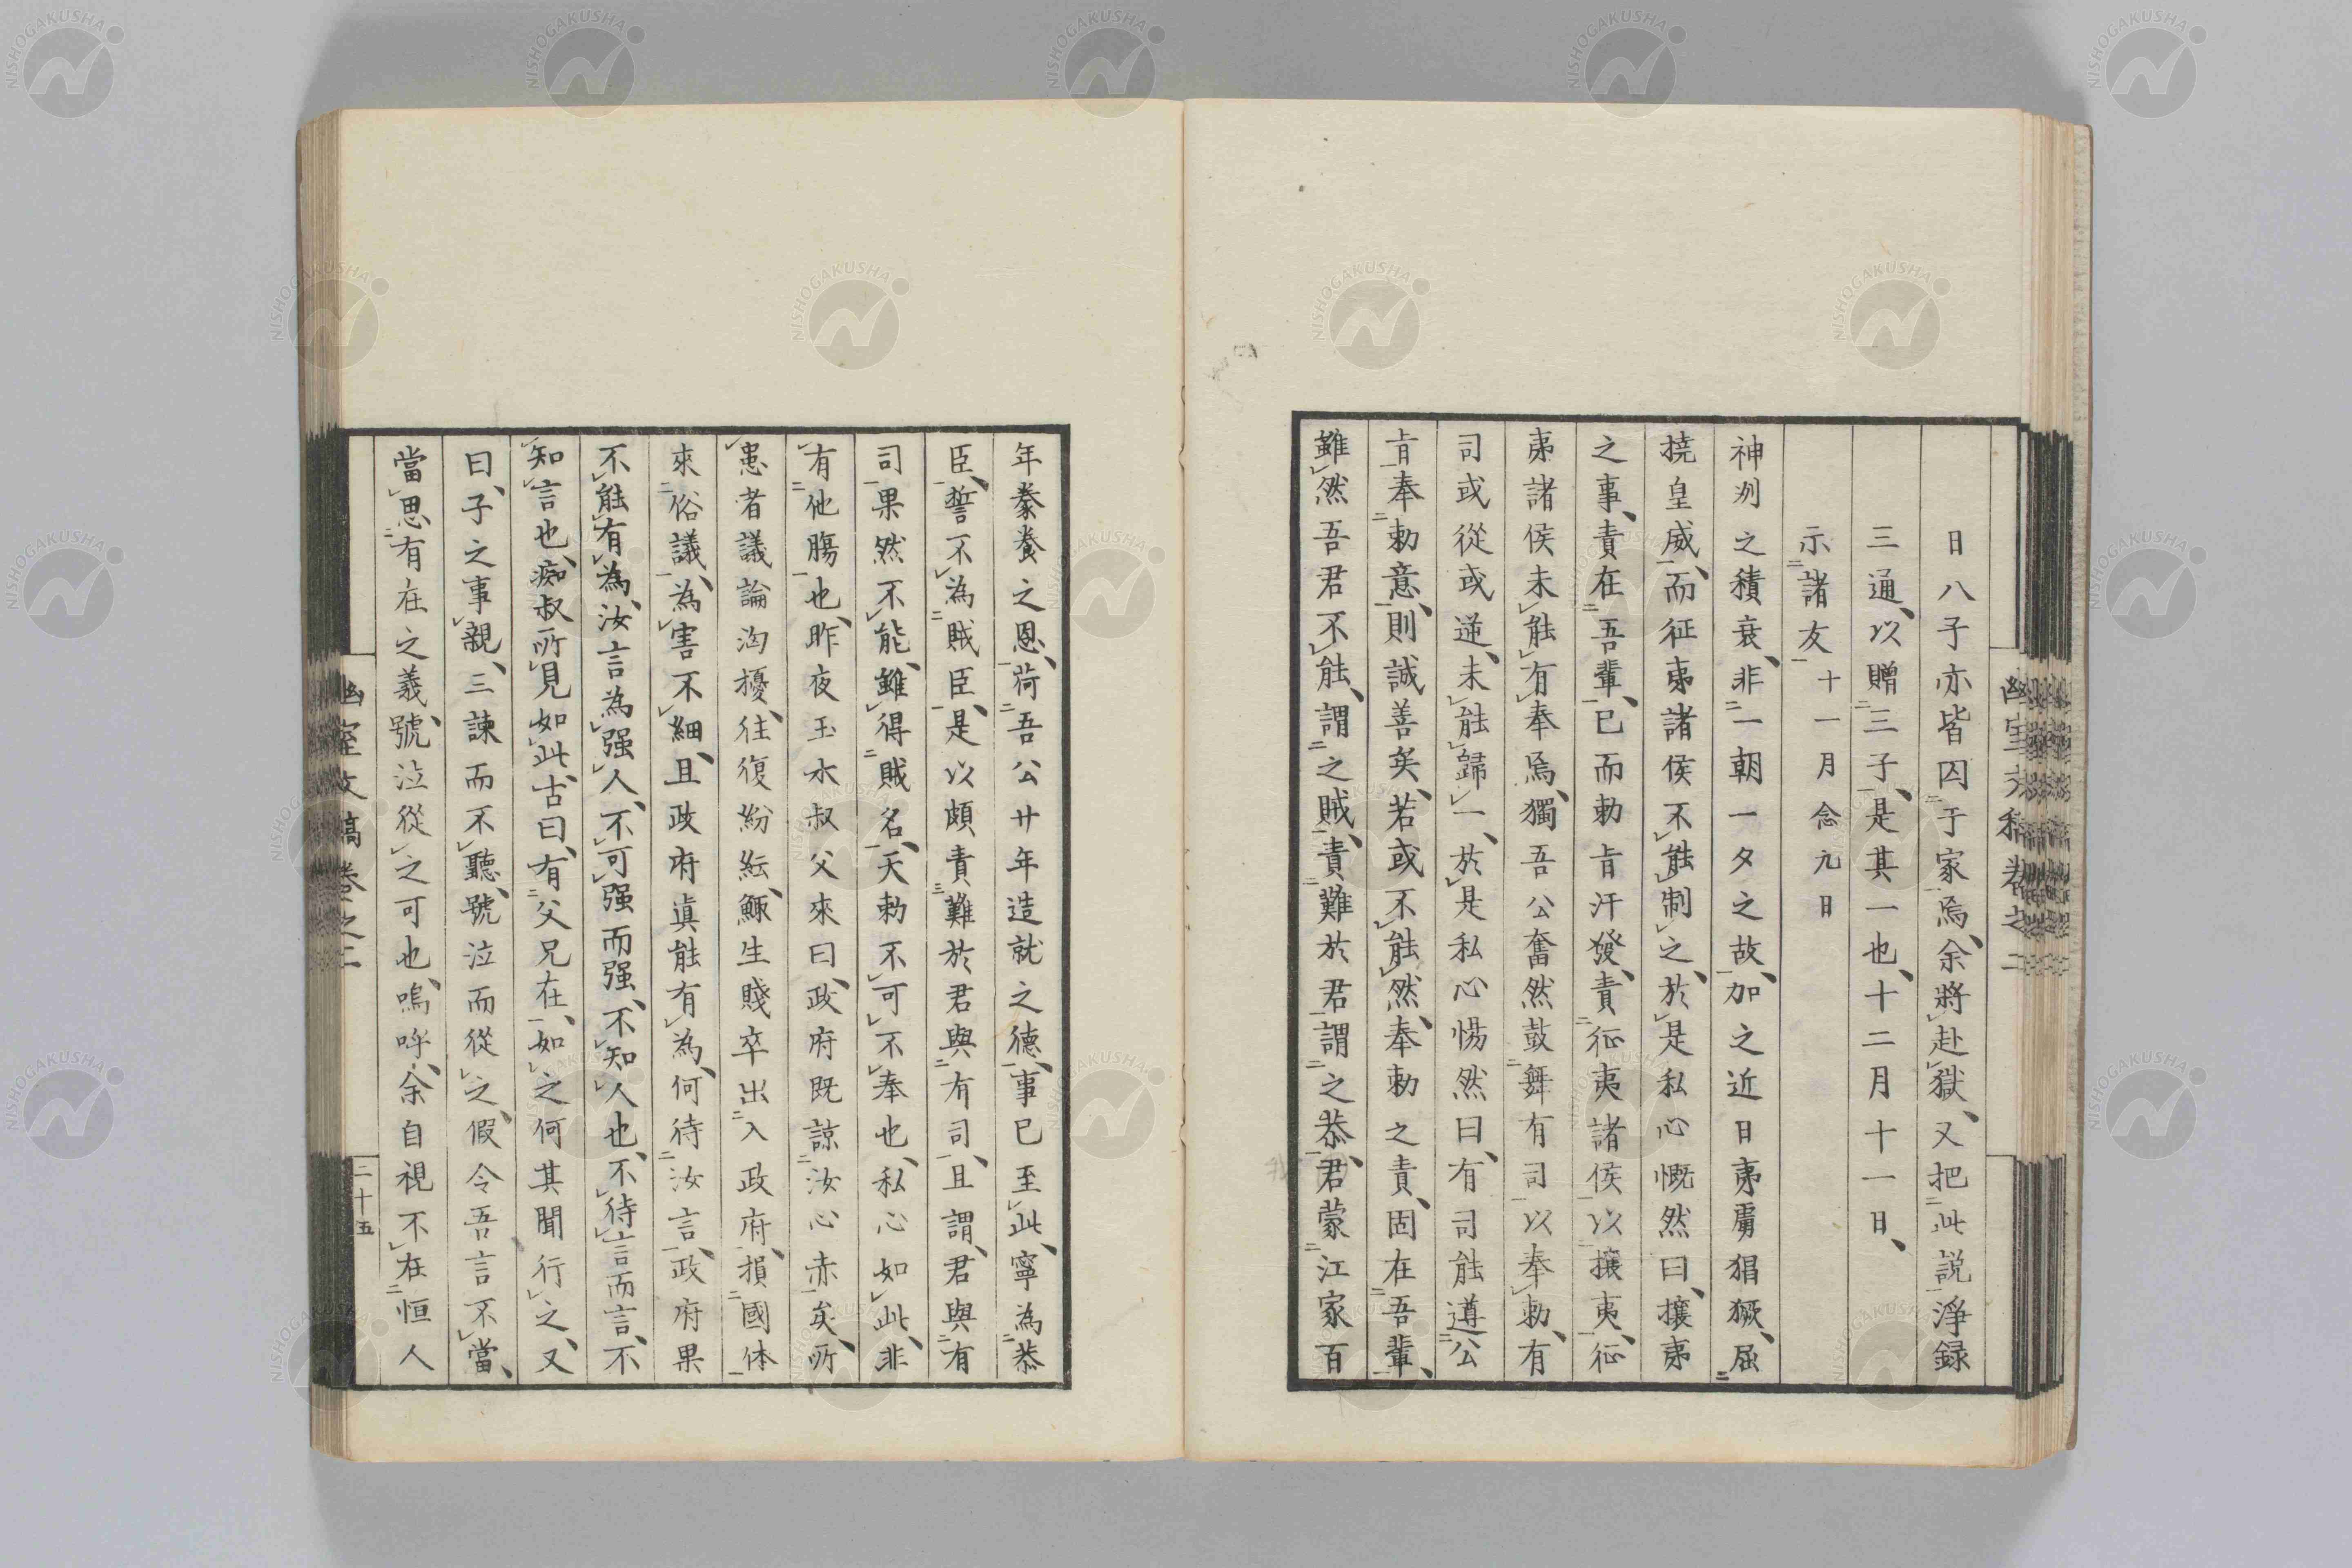 日八子亦皆囚于家焉、余將赴獄、又把此説淨録
三通、以贈三子、是其一也、十二月十一日、
示諸友 十一月念九日
神州之積衰、非一朝一夕之故、加之近日夷虜猖獗、屈
撓皇威、而征夷諸侯不能制之、於是私心慨然曰、攘夷
之事、責在吾輩、已而勅旨汗發、責征夷諸侯以攘夷、征
夷諸侯未能有奉焉、獨吾公奮然鼓舞有司以奉勅、有
司或從或逆、未能歸一、於是私心惕然曰、有司能遵公
旨奉勅意、則誠善矣、若或不能然、奉勅之責、固在吾輩、
雖然吾君不能、謂之賊、責難於君謂之恭、君蒙江家百
年豢養之恩、荷吾公廿年造就之德、事已至此、寧為恭
臣、誓不為賊臣、是以頗責難於君與有司、且謂、君與有
司果然不能、雖得賊名、天勅不可不奉也、私心如此、非
有他腸也、昨夜玉木叔父來曰、政府既諒汝心赤矣、所
患者議論洶擾、往復紛紜、鯫生賤卒出入政府、損國体
來俗議、為害不細、且政府眞能有為、何待汝言、政府果
不能有為、汝言為强人、不可强而强、不知人也、不待言而言、不
知言也、痴叔所見如此、古曰、有父兄在、如之何其聞行之、又
曰、子之事親、三諫而不聽、號泣而從之、假令吾言不當、
當思有在之義、號泣從之可也、嗚呼、余自視不在恒人
幽室文稿卷之二
二十五